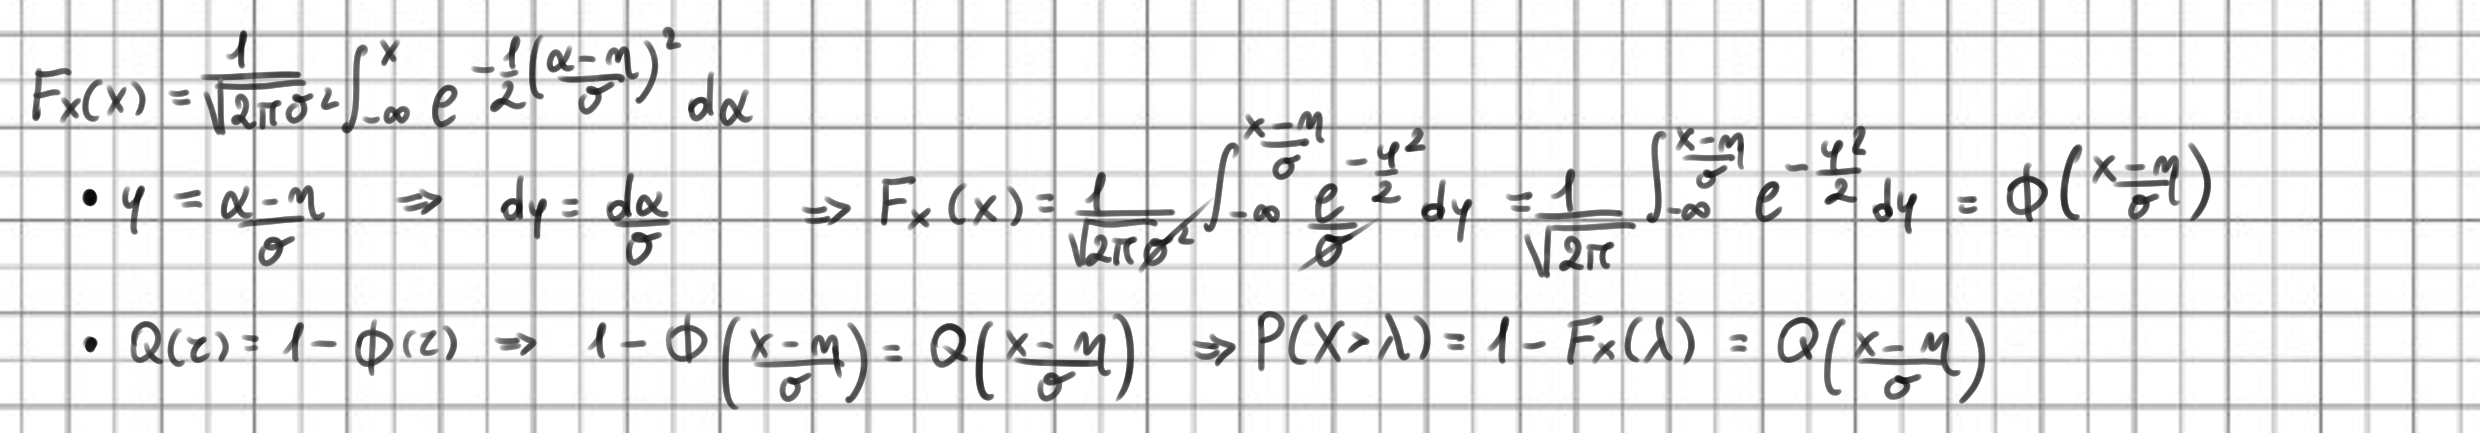 Fx(x) = 1/√(2πσ²) ∫_{-∞}^{x} e^{-1/2((α-η)/σ)²} dα
• y = (α-η)/σ ⇒ dy = dα/σ ⇒ Fx(x) = 1/√(2πσ²) ∫_{-∞}^{(x-η)/σ} e^{-y²/2}/σ dy = 1/√(2π) ∫_{-∞}^{(x-η)/σ} e^{-y²/2} dy = ϕ((x-η)/σ)
• Q(z) = 1 - ϕ(z) ⇒ 1 - ϕ((x-η)/σ) = Q((x-η)/σ) ⇒ P(X>λ) = 1 - Fx(λ) = Q((x-η)/σ)